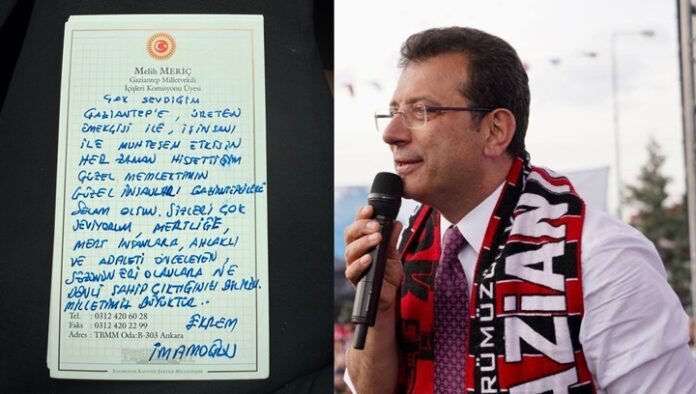 Melih MERİÇ
Gaziantep Milletvekili
İçişleri Komisyonu Üyesi
ÇOK SEVDİĞİM
GAZİANTEP'E, ÜRETEN
EMEKÇİSİ İLE, İŞİNSANI
İLE MUHTEŞEM ETKİSİN
HER ZAMAN HİSSETTİĞİM
GÜZEL MEMLEKETİMİN
GÜZEL İNSANLARI GAZİANTEPLİLERE
SELAM OLSUN. SİZLERİ ÇOK
SEVİYORUM, MERTLİĞE,
MERT İNSANLARA, AHLAKLI
VE ADALETİ ÖNCELEYEN,
SÖZÜNÜN ERİ OLANLARA NE
DENLİ SAHİP ÇIKTIĞINIZI BİLİRİM.
MİLLETİMİZ BÜYÜKTÜR..
Tel. : 0312 420 60 28
Faks : 0312 420 22 99
Adres : TBMM Oda:B-303 Ankara
EKREM
İMAMOĞLU
EGEMENLİK KAYITSIZ ŞARTSIZ MİLLETİNDİR
ZİAN
RÜMÜZÜ
GAZİAN